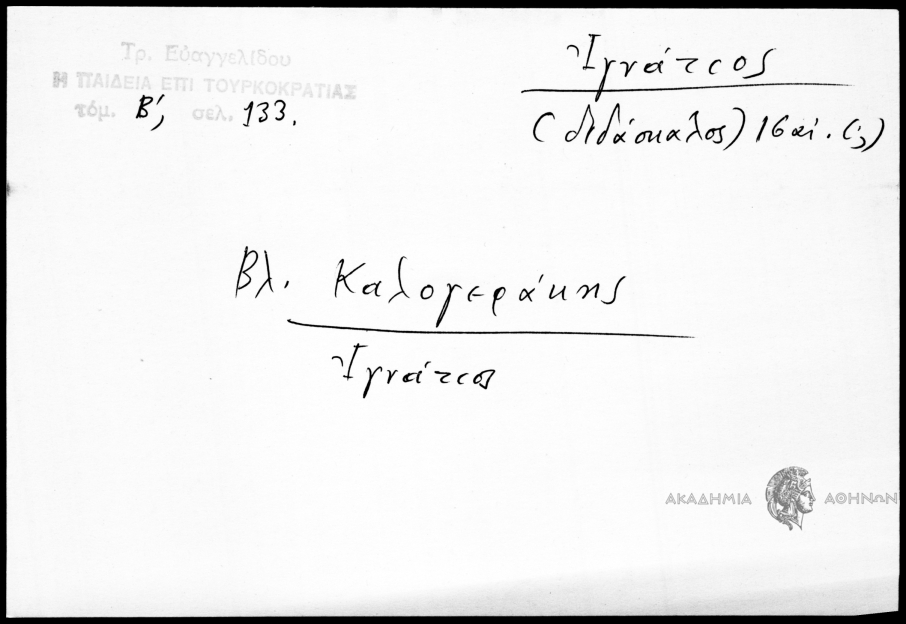 Τρ. Εὐαγγελίδου
Η ΠΑΙΔΕΙΑ ΕΠΙ ΤΟΥΡΚΟΚΡΑΤΙΑΣ
τόμ. Β', σελ. 133.
Ἰγνάτιος
(διδάσκαλος) 16 αἰ. (;)
Βλ. Καλογεράκης
Ἰγνάτιος
ΑΚΑΔΗΜΙΑ ΑΘΗΝΩΝ